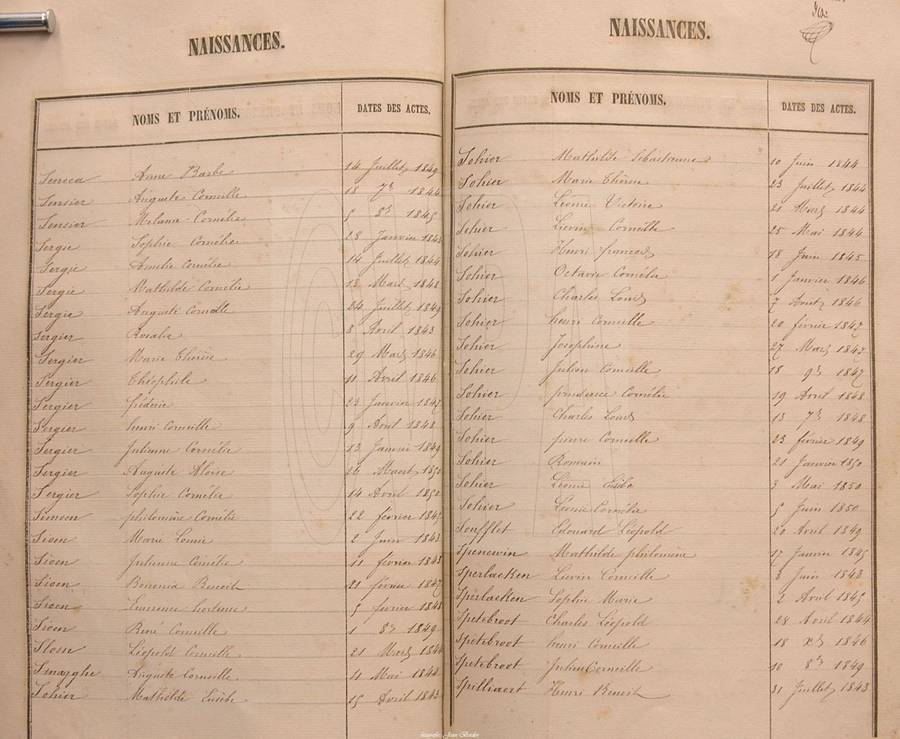 NAISSANCES.
NOMS ET PRÉNOMS. DATES DES ACTES.
Anne Barbe 14 Juillet 1849
Sensier Auguste Corneille 18 7bre 1844
Sensier Mélanie Cornélie 5 8bre 1845
Sergie Sophie Cornélie 28 Janvier 1843
Sergie Amelie Cornélie 14 Juillet 1844
Sergie Mathilde Cornélie 13 Mars 1848
Sergie Auguste Corneille 24 Juillet 1849
Sergier Rosalie 8 Avril 1843
Sergier Marie Thérèse 29 Mars 1846
Sergier Théophile 11 Avril 1846
Sergier fidérie 23 Janvier 1847
Sergier henri Corneille 9 Aout 1848
Sergier Julienne Cornélie 13 Janvier 1849
Sergier Auguste Aloise 26 Mars 1850
Sergier Sophie Cornélie 14 Avril 1850
Simoen philomène Cornélie 22 février 1845
Sioen Marie Louise 2 Juin 1843
Sioen Julienne Cornélie 11 février 1845
Sioen Benonia Benoit 21 février 1847
Sioen Laurence hortense 5 février 1848
Sioen René Corneille 1 8bre 1849
Léopold Corneille 21 Mars
Smagghe Auguste Corneille 4 Mai 1844
Sohier Mathilde Eusébe 15 Avril 1843
NAISSANCES.
NOMS ET PRÉNOMS. DATES DES ACTES.
Sohier Mathilde Sébastienne 10 Juin 1844
Sohier Marie Thérèse 23 Juillet 1844
Sohier Léonie Victoire 21 Mars 1844
Sohier Liévin Corneille 25 Mai 1844
Sohier Henri françois 18 Juin 1845
Sohier Octavie Cornélie 1 Janvier 1846
Sohier Charles Louis 7 Août 1846
Sohier henri Corneille 20 février 1847
Sohier Joséphine 27 Mars 1847
Sohier Julien Corneille 18 9bre 1847
Sohier prudence Cornélie 19 Avril 1848
Sohier Charles Louis 13 7bre 1848
Sohier pierre Corneille 23 février 1849
Sohier Romain 21 Janvier 1850
Sohier Léonie Eusébe 3 Mai 1850
Sohier Léonie Cornélie 5 Juin 1850
Soufflet Edouard Léopold 20 Avril 1849
Spenewin Mathilde philomène 17 Janvier 1845
Sperlaeken Liévin Corneille 8 Juin 1843
Sperlaeken Sophie Marie 2 Avril 1845
Spetebroot Charles Léopold 28 Avril 1844
Spetebroot henri Corneille 18 xbre 1846
Spetebroot Julien Corneille 10 8bre 1849
Spilliaert Henri Benoit 31 Juillet 1843